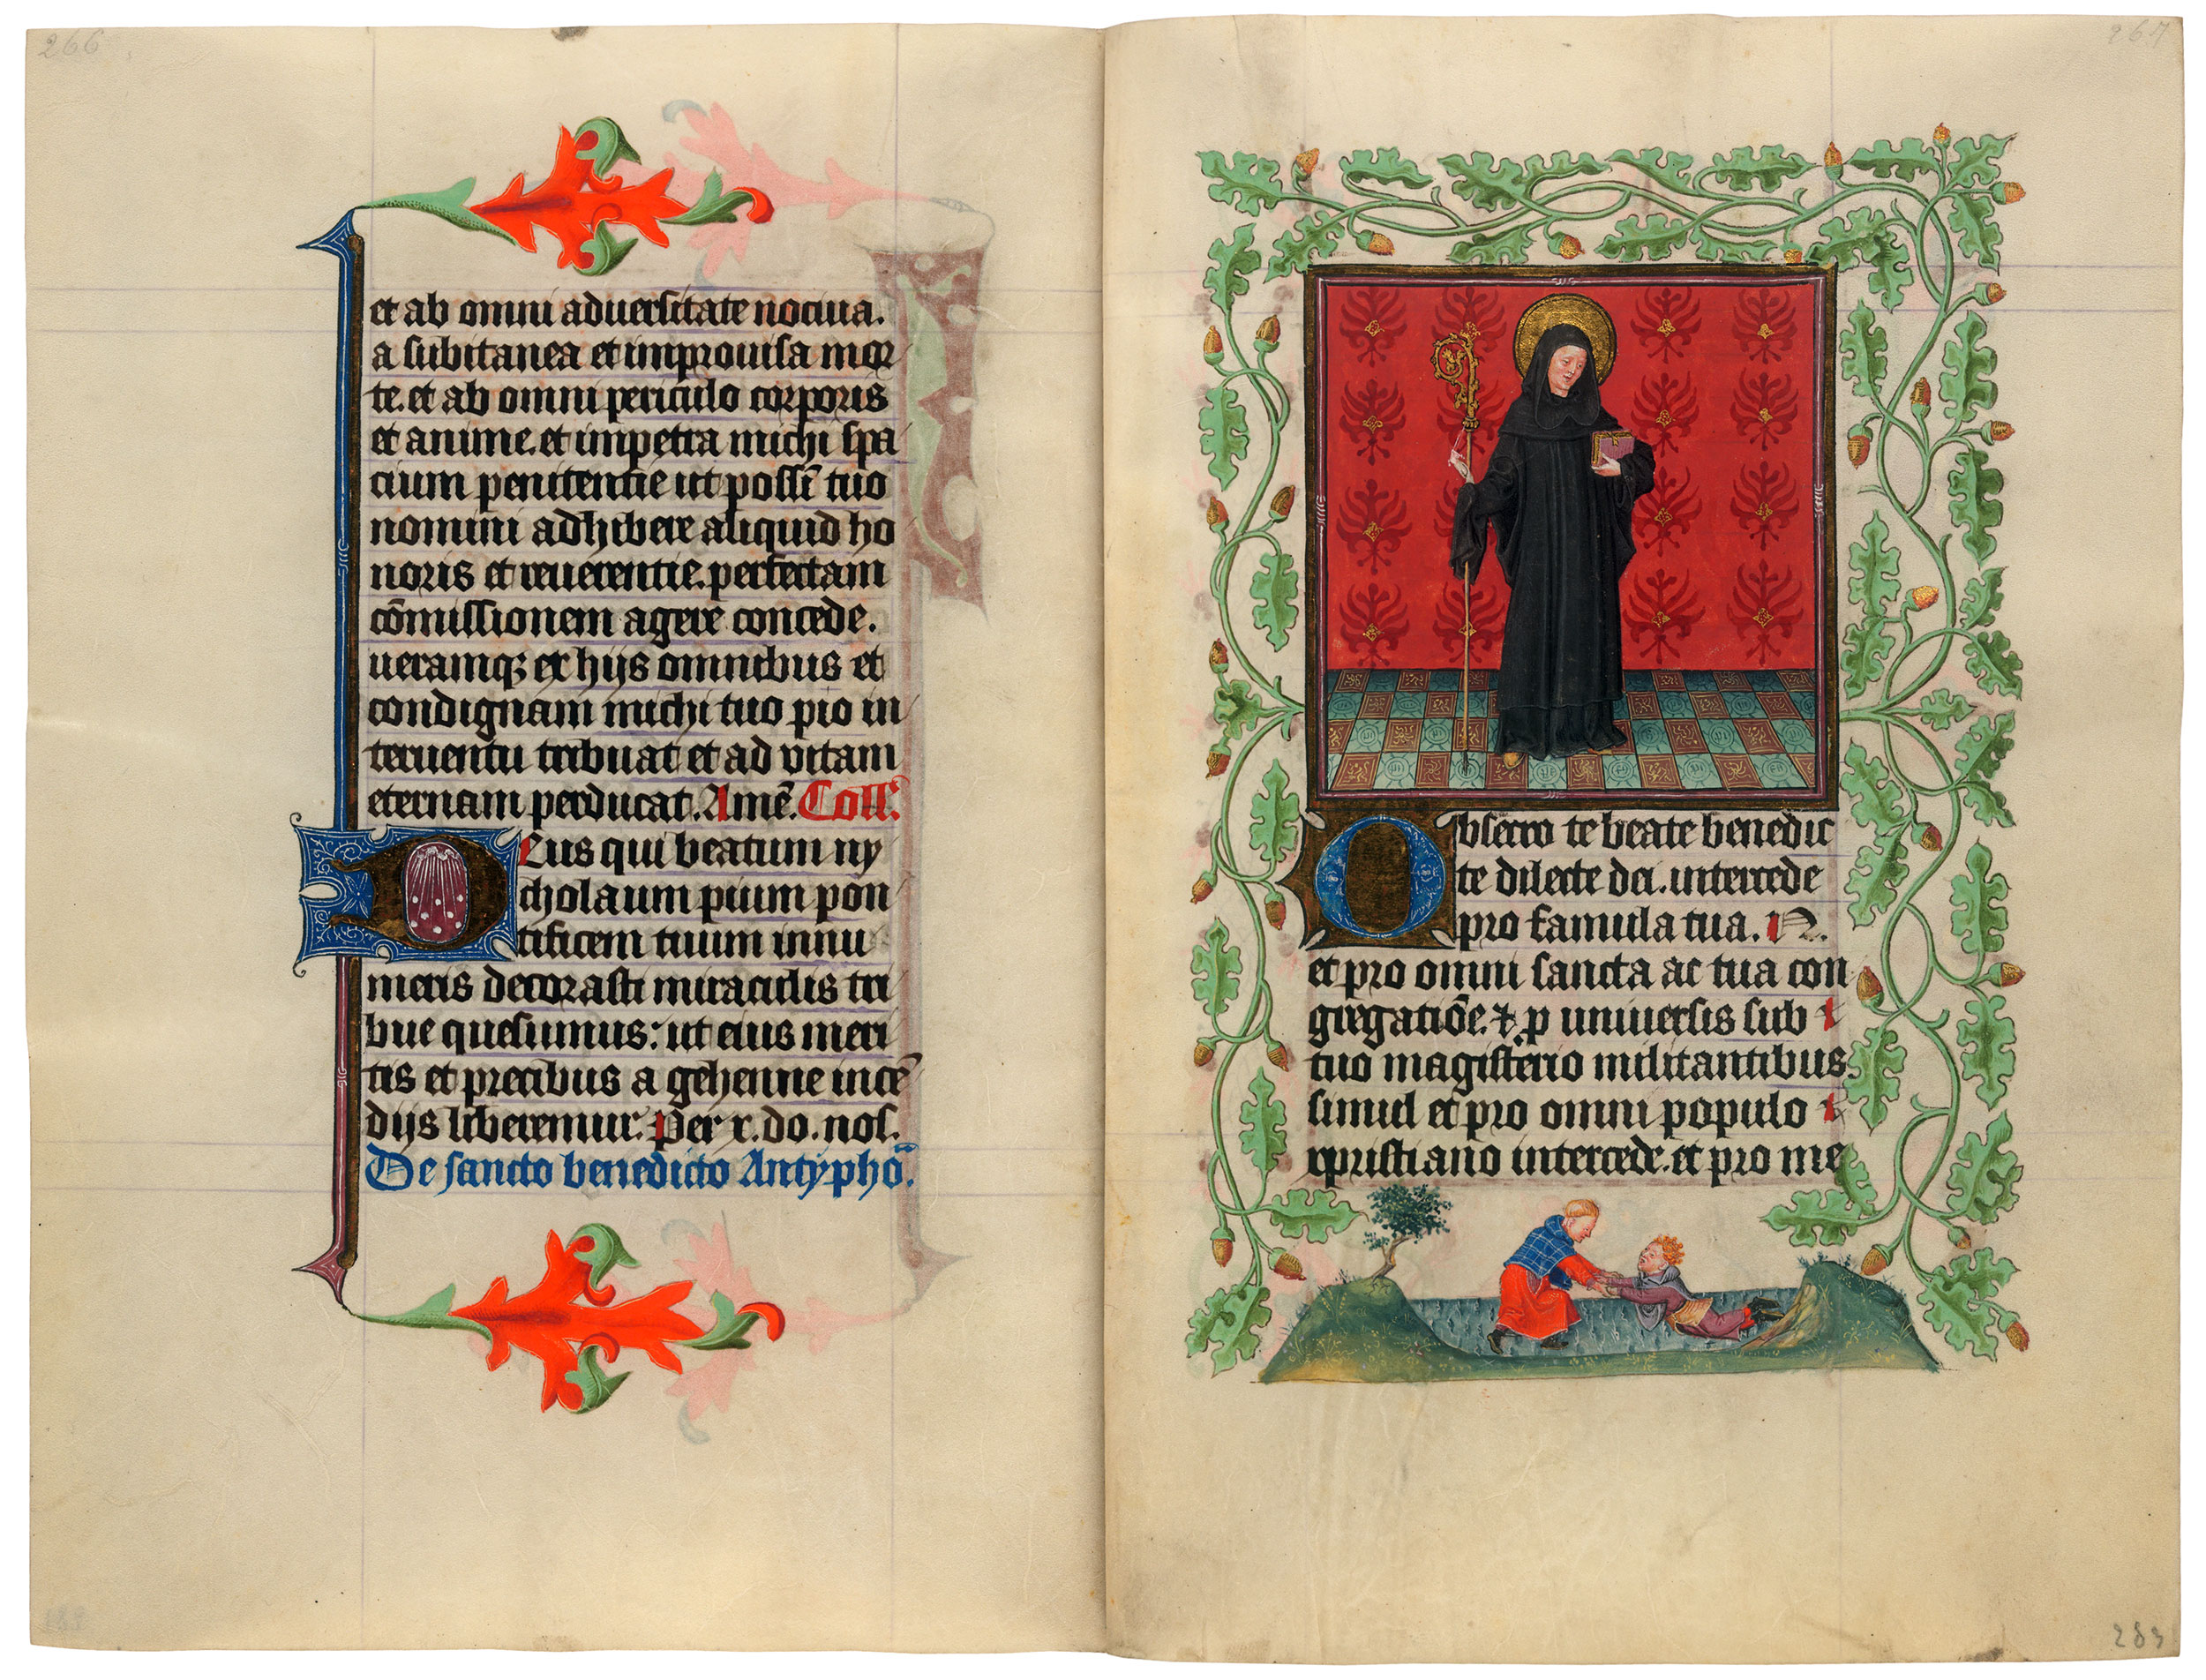 266
et ab omni aduersitate nociua.
a subitanea et improuisa mor
te. et ab omni periculo corporis
et anime. et impetra michi spa
cium penitentie ut possī tuo
nomini adhibere aliquid ho
noris et reuerentie. perfectam
cōmissionem agere concede.
ueramq; ex hijs omnibus et
condignam michi tuo pio in
teruentu tribuat et ad vitam
eternam perducat. Amē. Coll'.
Deus qui beatum ny
cholaum pium pon
tificem tuum innu
meris decorasti miraculis tri
bue quesumus: ut eius meri
tis et precibus a gehenne incē
dijs liberemur. Per x. do. nos.
De sancto benedicto Antyphō.
267
Obsecro te beate benedic
te dilecte dei. intercede
pro famula tua. N.
et pro omni sancta ac tua con
gregatiōe. & p uniuersis sub
tuo magisterio militantibus.
simul et pro omni populo
xpristiano intercede. et pro me
283